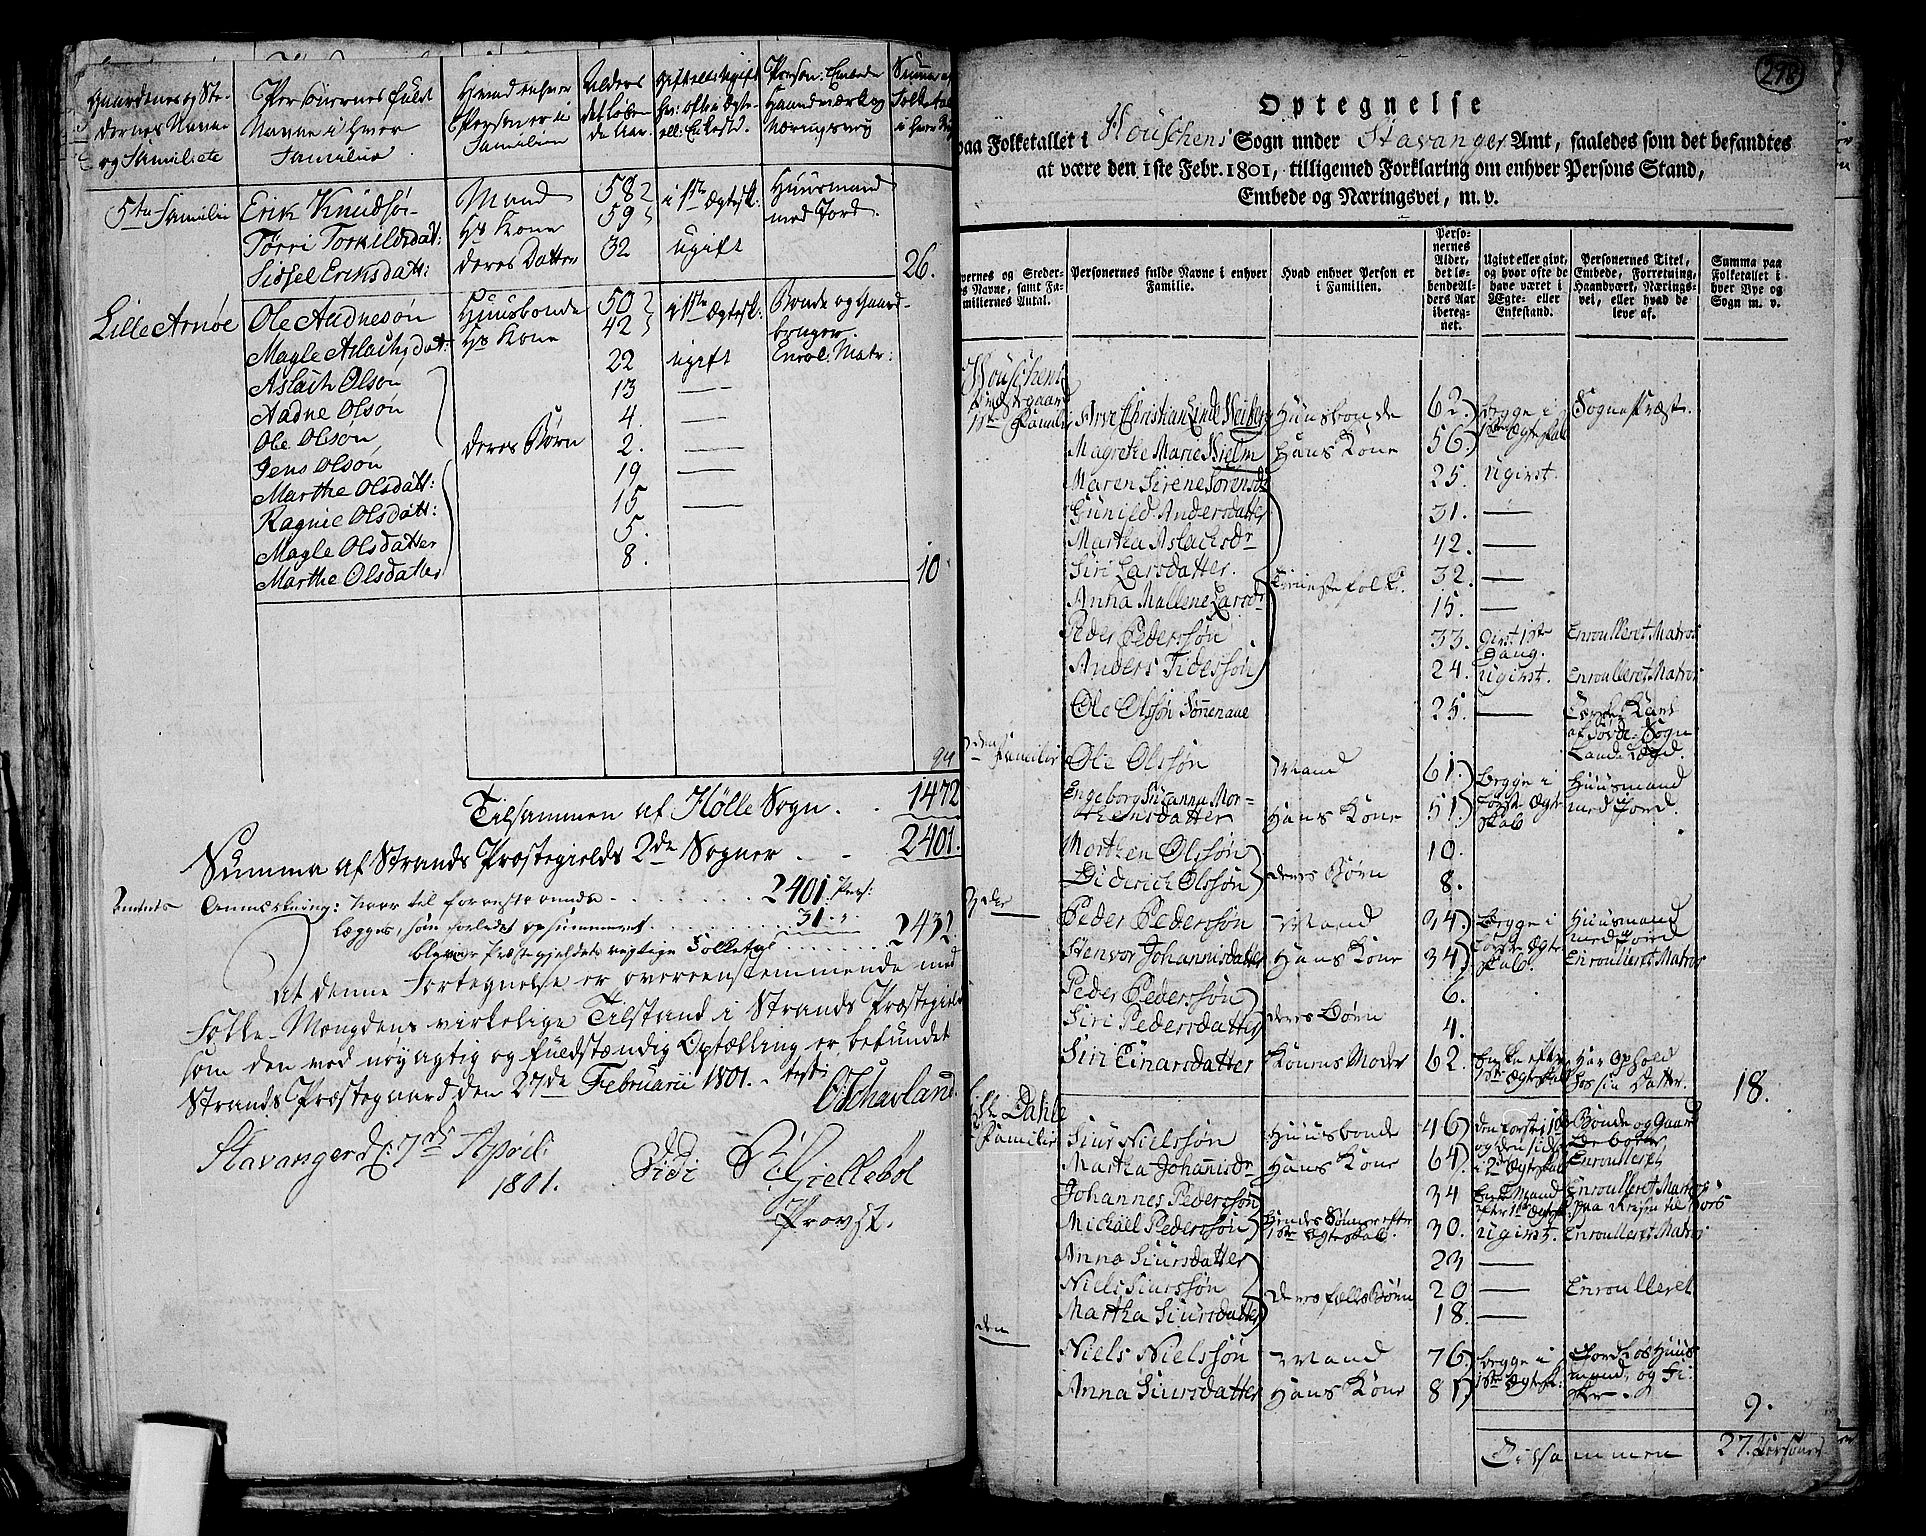 Gaardenes og Ste-
dernes Navne
og Familiete
Personernes fuld
Navne i hver
Familie
Hvad enhver
Person er i
Familien
Alders
det løben
de Aar.
Person: Embede
Haandværk og
Næringsvej
5te Familie
Erik Knudsøn
Mand
58
i 1ste Ægtesk:
Huusmand
med Jord.
Tørri Torkildsdat:
Hs Kone
59
Sissel Eriksdatt:
deres Datter
32
ugift
26.
Lille Arnøe
Ole Aadnesøn
Huusbonde
50
i 1ste Ægtesk:
Bonde og Gaard-
bruger.
Magle Aslachsdatt:
Hs Kone
42
Aslach Olsøn
22
ugift
Enrol: Matr:
Aadne Olsøn
13
Ole Olsøn
deres Børn
4.
Jens Olsøn
2.
Marthe Olsdatt:
19
Ragnie Olsdatt:
15
Magle Olsdatter
5.
Marthe Olsdatter
8.
10
94
Tilsammen af Hölle Sogn. 1472
Summa af Strands Præstegields 2de Sogner 2401.
Anmærkning: naar til foranførte 2401 Pers:
lægges, som forledet opsummeret 31
bliver Præstegieldets rigtige Folketal 2432
At denne Fortegnelse er overeensstemmende med
Folke-Mængdens virkelige Tilstand i Strands Præstegield
som den ved nøyagtig og fuldstændig Optælling er befundet
Strands Præstegaard den 27de Februarii 1801.
Stavanger d: 7de April
1801.
Vidi
Provst.
278
Optegnelse
paa Folketallet i Houschens Sogn under Stavanger Amt, saaledes som det befandtes
at være den 1ste Febr. 1801, tilligemed Forklaring om enhver Persons Stand,
Embede og Næringsvei, m. v.
vernes og Steder-
s Navne, samt Fa-
miliernes Antal.
Personernes fulde Navne i enhver
Familie.
Hvad enhver Person er
i Familien.
Perso-
nernes
Alder,
det lø-
bende Al-
ders Aar
iberegnet.
Ugivt eller givt,
og hvor ofte de
have været i
Ægte- eller
Enkestand.
Personernes Titel,
Embede, Forretning,
Haandværk, Nærings-
vei, eller hvad de
leve af.
Summa paa
Folketallet i
hver Bye og
Sogn m. v.
Houschens
Præstgaard
1ste Familie
Arve Christian Linde Heiberg
Huusbonde
62.
begge i
1ste Ægteskab
Sognepræst.
Magrethe Marie Hielm
Hans Kone
56.
Maren Sirene Sørensdr
25.
ugivst.
Gunild Andersdatter
31.
Martha Aslachsdr
42.
Siri Larsdatter.
Tienestefolk.
32.
Anna Mallene Larsdr
15.
Peder Pederssøn
33.
givst 1ste
Gang.
Enroulleret Matros
Anders Tiderssøn
24.
ugivst.
Enroulleret Matros
Ole Olssøn Sønnenaae
25.
den
Familie
Ole Olssøn
Mand
61.
begge i
første Ægte
skab
Huusmand
med Jord.
Engeborg Susanna Mor-
thensdatter
Hans Kone
51
Morthen Olssøn
10.
Diderich Olssøn
deres Børn
8.
3die
Peder Pederssøn
Mand
34.
begge i
første Ægte
skab.
Huusmand
med Jord
Enroulleret Matros
Stenvor Johannisdatter
Hans Kone
34
Peder Pederssøn
6.
Siri Pedersdatter
deres Børn
4.
Siri Einarsdatter
Konens Moder
62.
Enke efter
1ste Ægteskab
Har Ophold
hos sin Datter.
18.
Lille Dahle
Familie
Siur Nielssøn
Huusbonde
46
Bonde og Gaard
Enroulleret
Martha Johannisdr
Hans Kone
64
Johannes Pederssøn
34
Enkemand
efter 1ste Ægtesk.
Enroulleret Matros
Michael Pederssøn
Hendes Sønner efter
1ste Ægteskab.
30.
ugivst.
Enroulleret Matros
Anna Siursdatter
23
Niels Siurssøn
deres fælles Børn
20
Enroulleret
Martha Siursdatter
18.
den
Niels Nielssøn
Mand
76
begge i
1ste Ægtesk.
Jordløs Huus
mand, og Fi-
sker.
Anna Siursdatter
Hans Kone
81
9.
Tilsammen
27. Personer